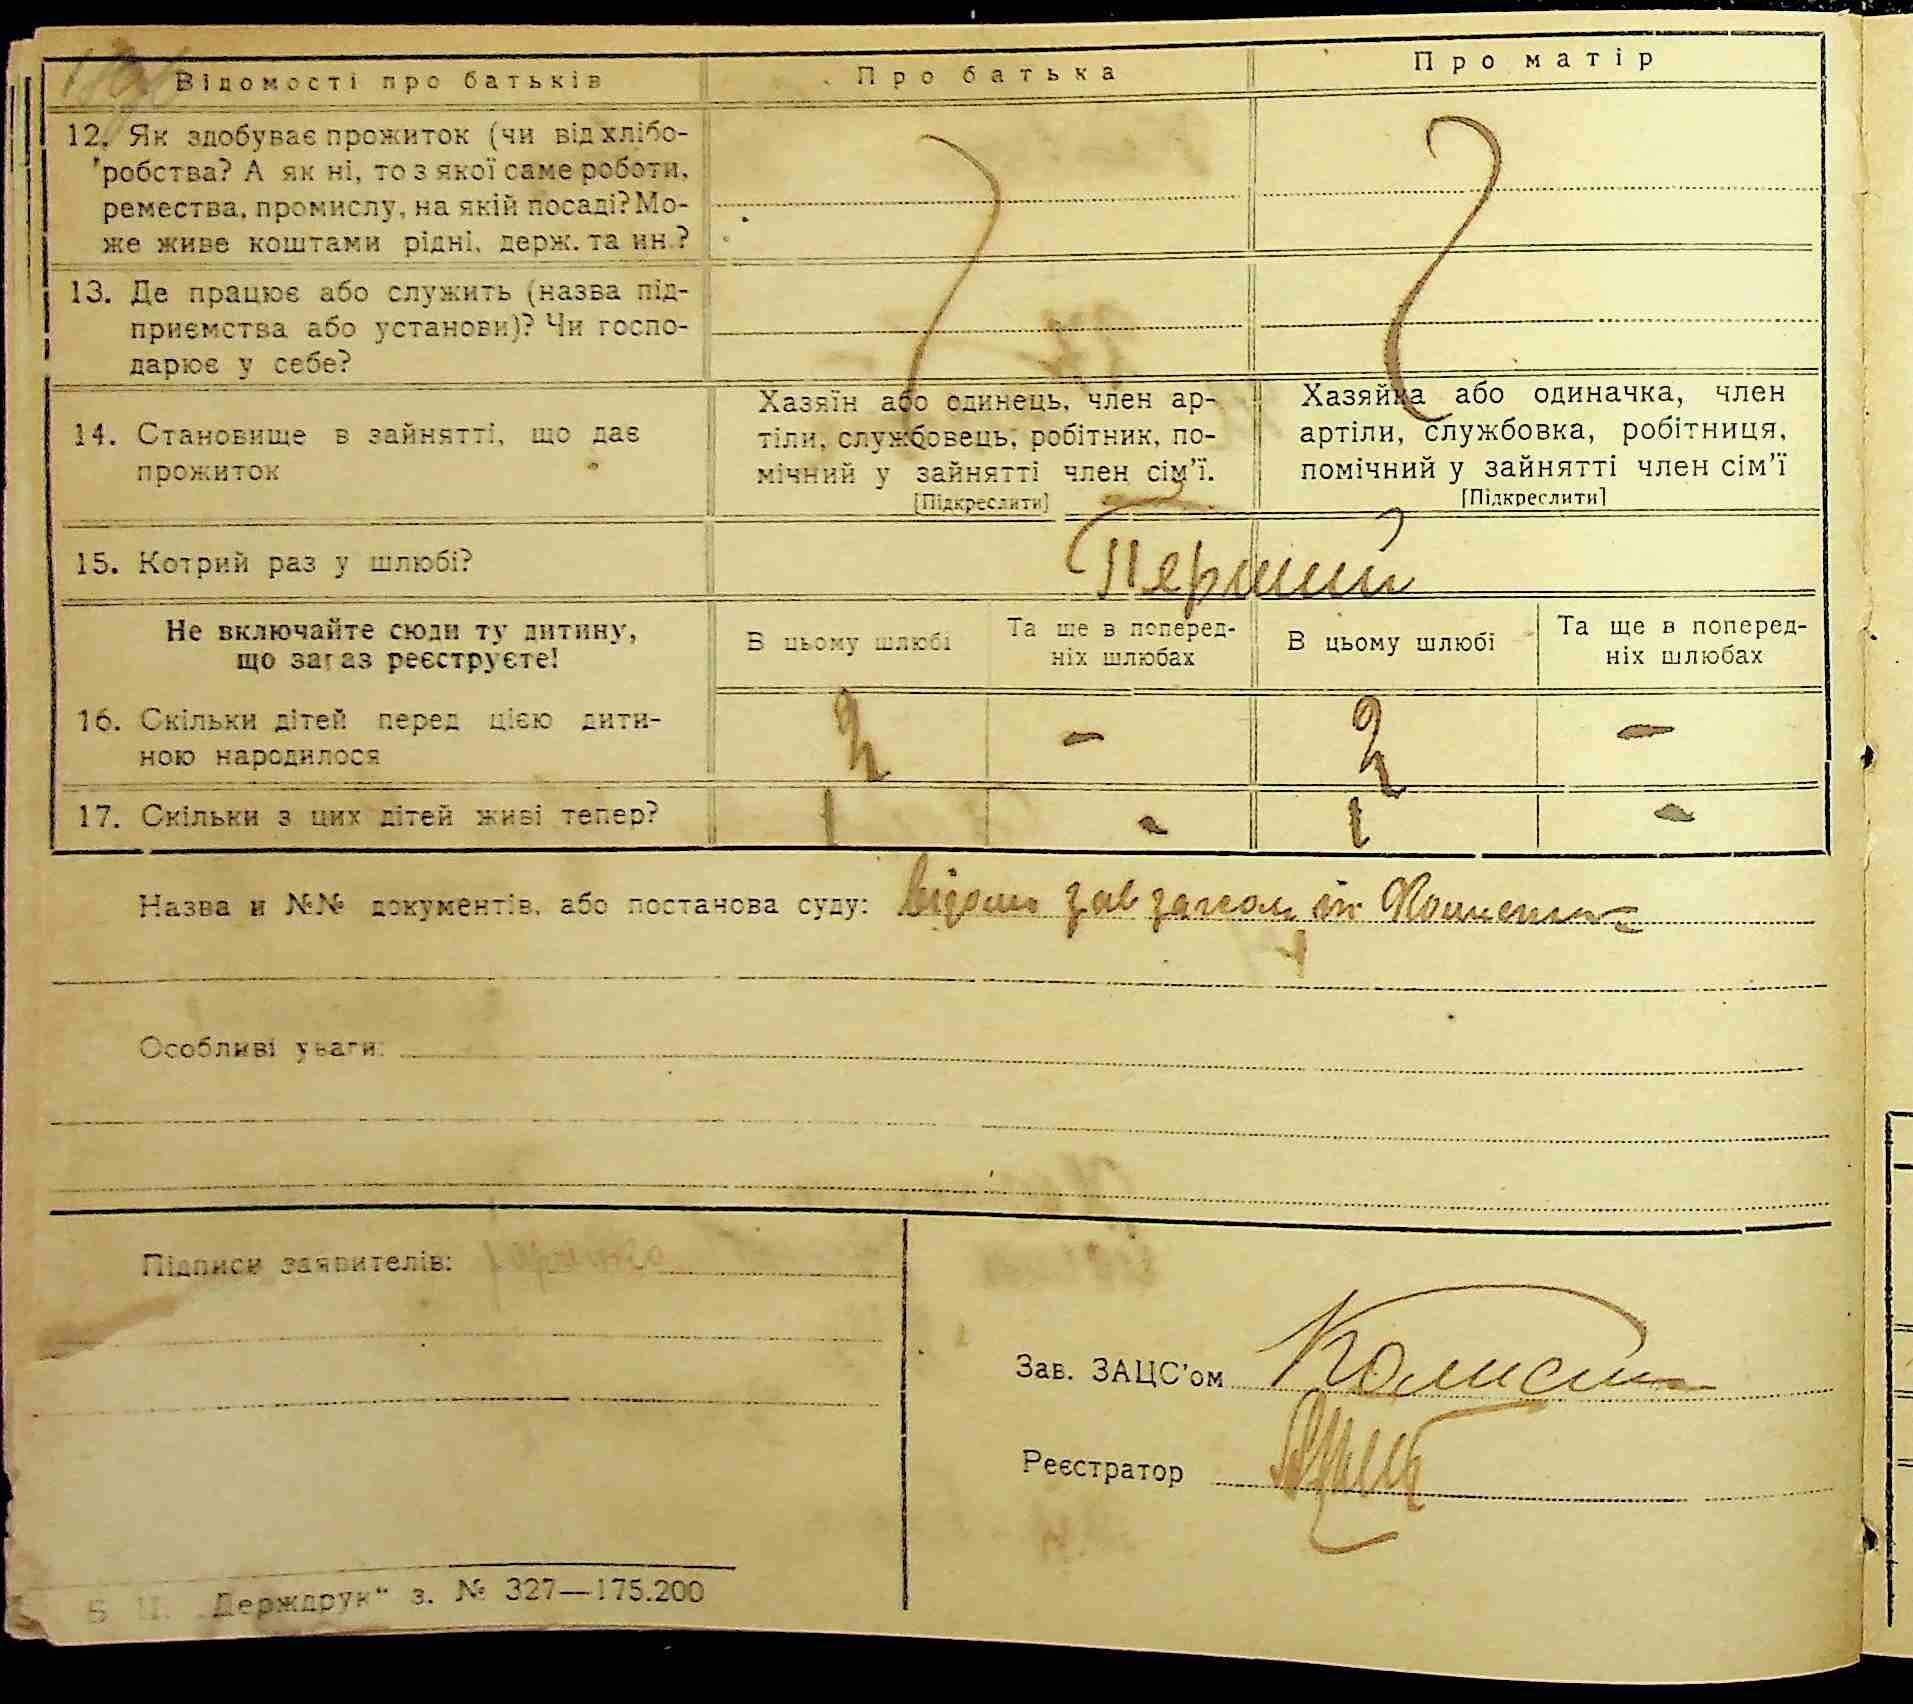 Відомості про батьків
Про батька
Про матір
12. Як здобуває прожиток (чи від хлібо-
робства? А як ні, то з якої саме роботи,
ремества, промислу, на якій посаді? Мо-
же живе коштами рідні, держ. та ин.?
13. Де працює або служить (назва під-
приємства або установи)? Чи госпо-
дарює у себе?
14. Становище в зайнятті, що дає
прожиток
Хазяїн або одинець, член ар-
тіли, службовець, робітник, по-
мічний у зайнятті член сім’ї.
[Підкреслити]
Хазяйка або одиначка, член
артіли, службовка, робітниця,
помічний у зайнятті член сім’ї
[Підкреслити]
15. Котрий раз у шлюбі?
Перший
Не включайте сюди ту дитину,
що зараз реєструєте!
В цьому шлюбі
Та ще в поперед-
ніх шлюбах
В цьому шлюбі
Та ще в поперед-
ніх шлюбах
16. Скільки дітей перед цією дити-
ною народилося
2 - 2 -
17. Скільки з цих дітей живі тепер?
1 - 1 -
Назва и №№ документів, або постанова суду:
Особливі уваги:
Підписи заявителів:
Зав. ЗАЦС’ом
Реєстратор
„Держдрук“ з. № 327—175.200